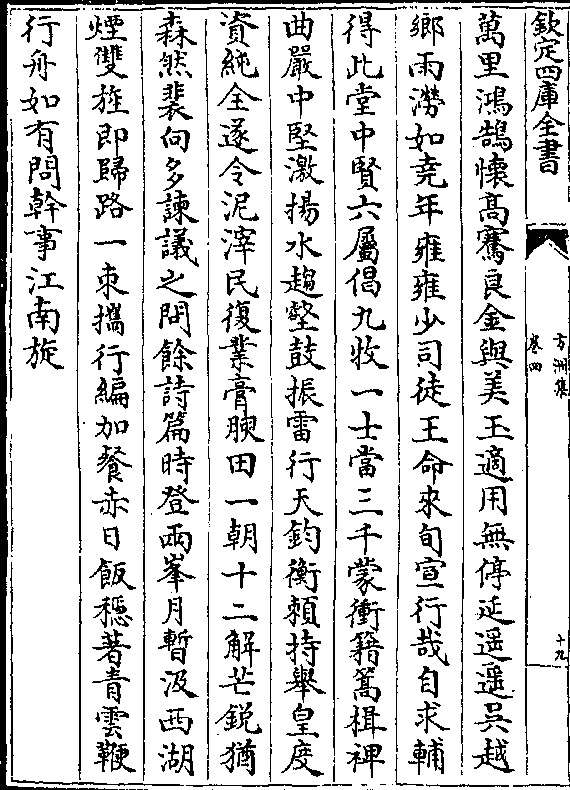 欽定四庫全書
方洲集
卷四
十九
萬里鴻鵠懷高騫良金與美玉適用無停延遥遥吳越
鄉雨澇如堯年雍雍少司徒王命來旬宣行哉自求輔
得此堂中賢六屬倡九收一士當三千蒙衝籍篙楫裨
曲嚴中堅激揚水趨壑鼓振雷行天鈞衡賴持舉皇度
資純全遂令泥滓民復業膏腴田一朝十二解芒銳猶
森然裴向多諫議之問餘詩篇時登兩峯月暫汲西湖
煙雙旌即歸路一朿攜行編加餐赤日飯穏著青雲鞭
行舟如有問幹事江南旋